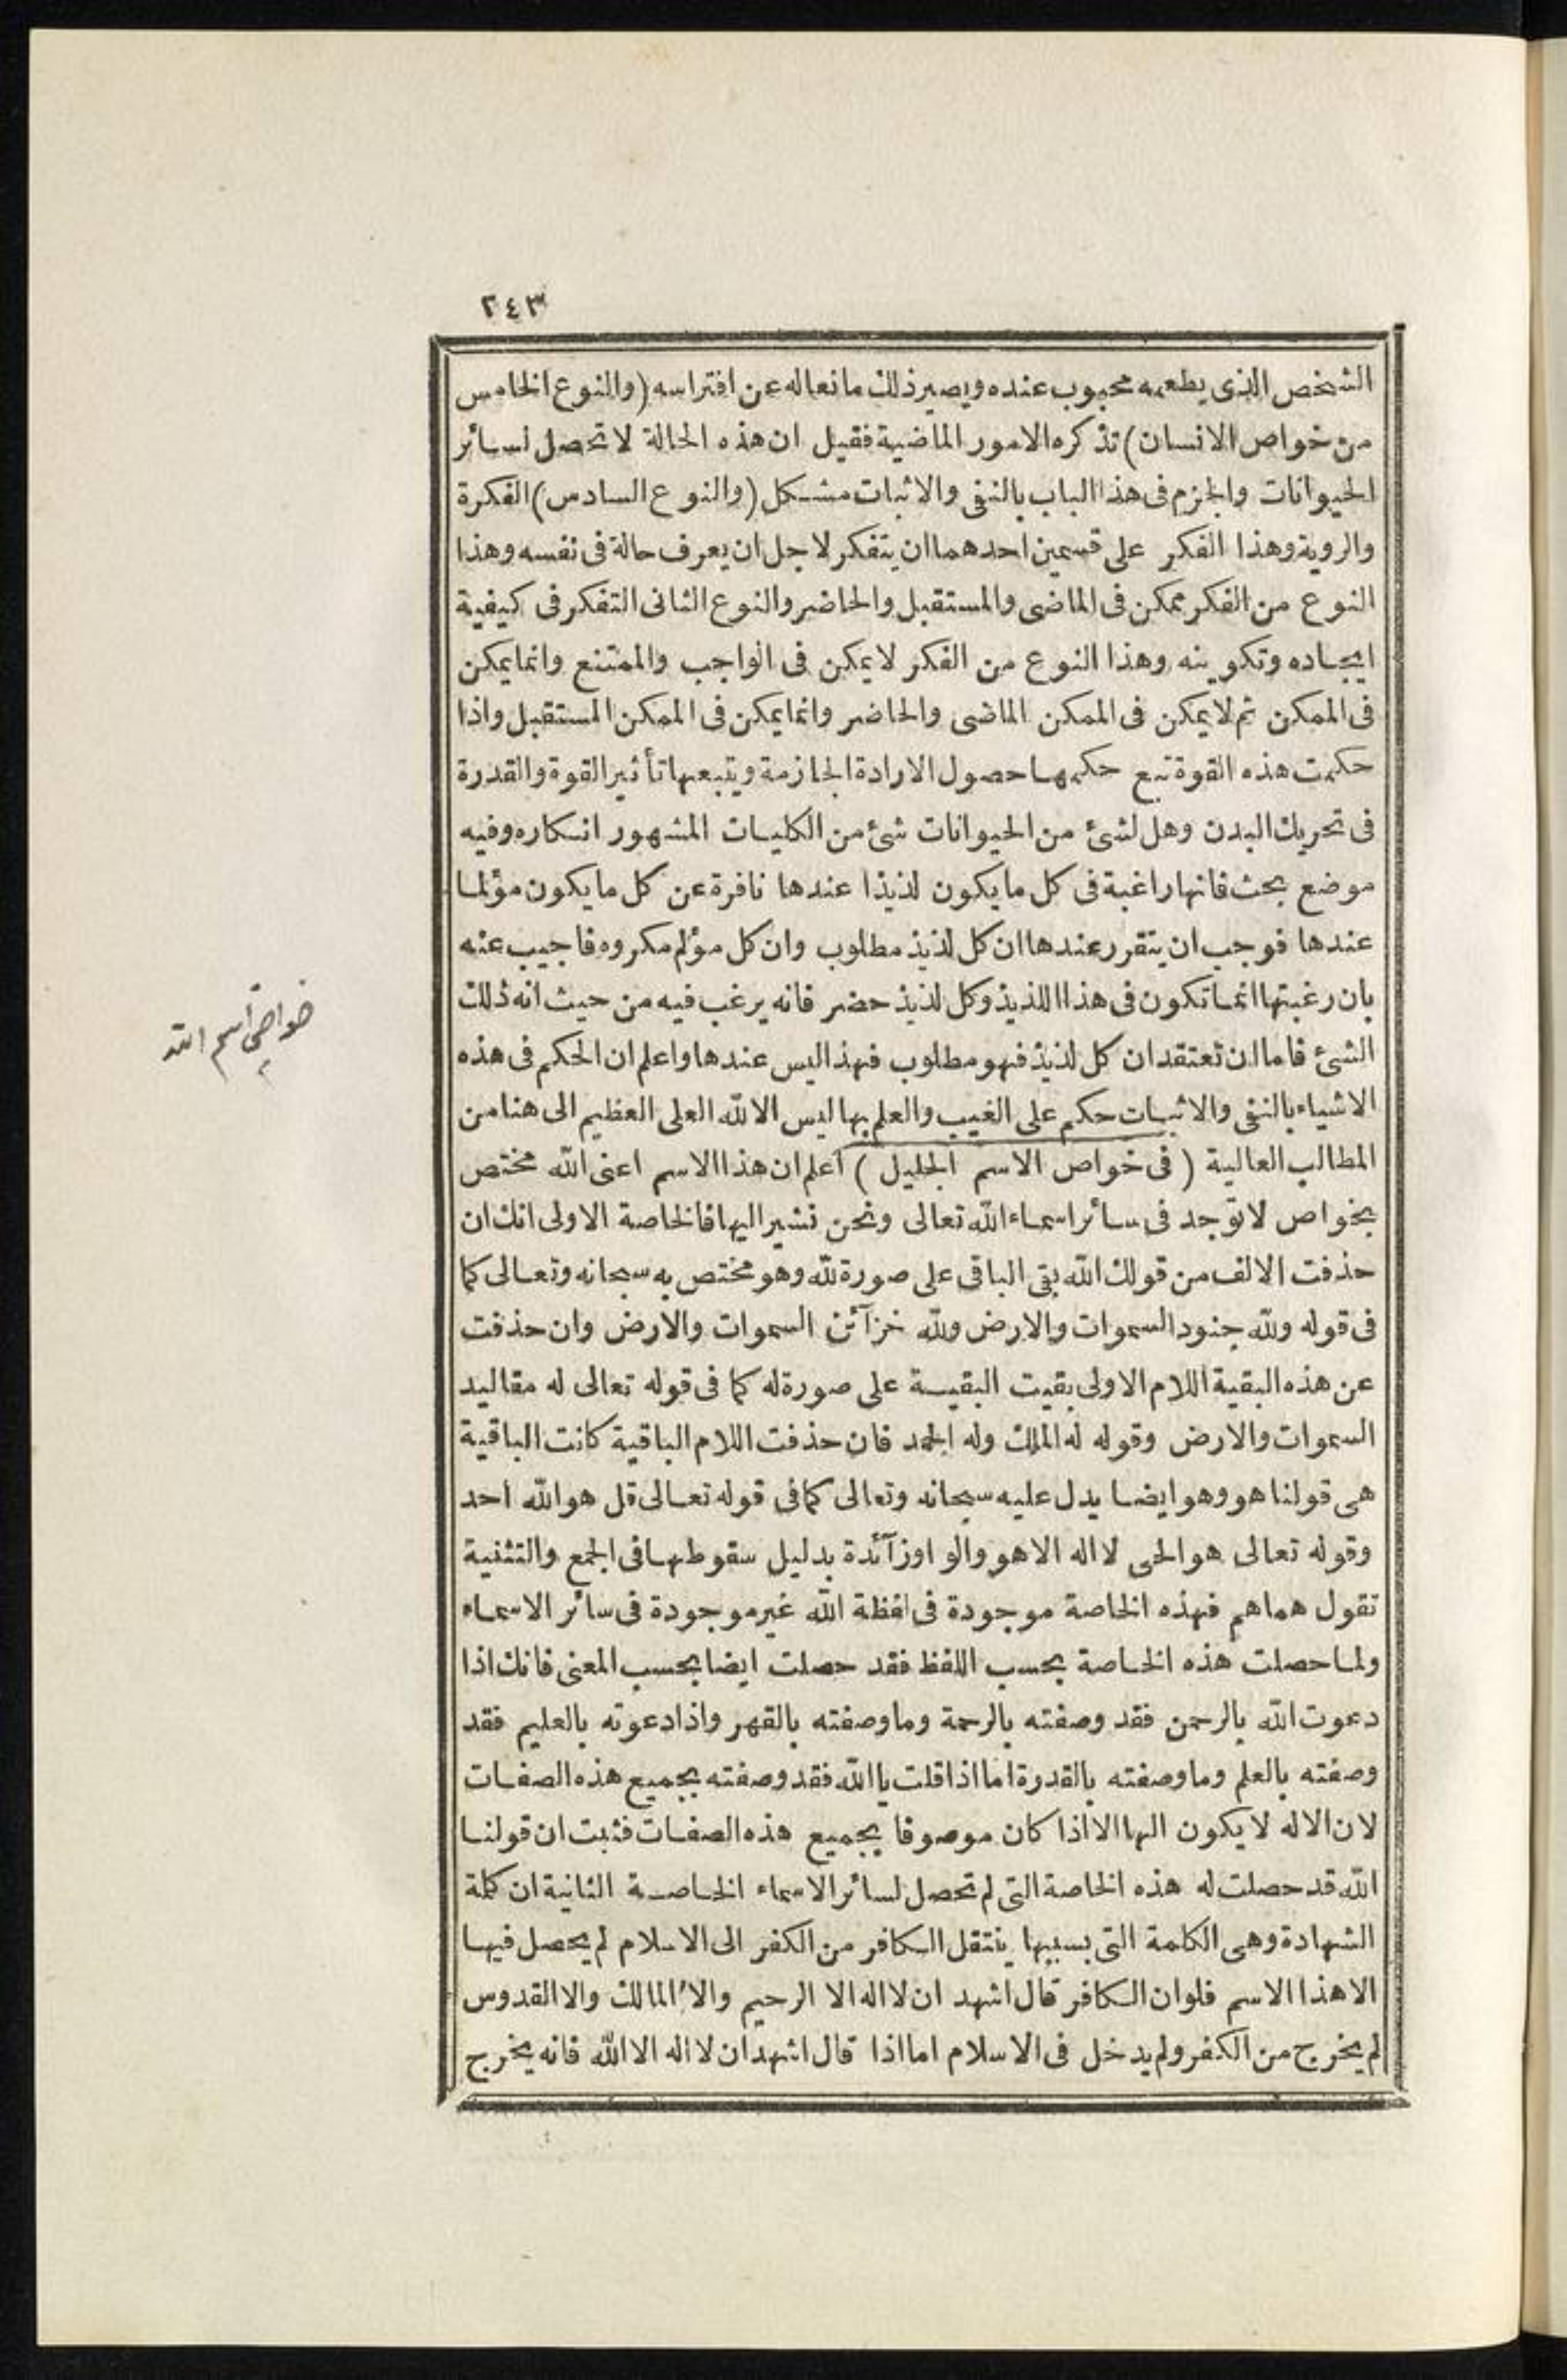 ٢٤٣
الشخص الذى يطعمه محبوب عنده ويصير ذلك مانعاله عن افتراسه (والنوع الخامس
من خواص الانسان) تذكره الامور الماضية فقيل ان هذه الحالة لا تحصل لسائر
الحيوانات والجزم فى هذا الباب بالنفى والاثبات مشكل (والنوع السادس) الفكرة
والروية وهذا الفكر على قسمين احدهما ان يتفكر لاجل ان يعرف حالة فى نفسه وهذا
النوع من الفكر ممكن فى الماضى والمستقبل والحاضر والنوع الثانى التفكر فى كيفية
ايجاده وتكوينه وهذا النوع من الفكر لا يمكن فى الواجب والممتنع وانما يمكن
فى الممكن ثم لا يمكن فى الممكن الماضى والحاضر وانما يمكن فى الممكن المستقبل واذا
حكمت هذه القوة تبع حكمها حصول الارادة الجازمة ويتبعها تأثير القوة والقدرة
فى تحريك البدن وهل لشئ من الحيوانات شئ من الكليات المشهور انكاره وفيه
موضع بحث فانها راغبة فى كل ما يكون لذيذا عندها نافرة عن كل ما يكون مؤلما
عندها فوجب ان يتقرر عندها ان كل لذيذ مطلوب وان كل مؤلم مكروه فاجيب عنه
بان رغبتها انما تكون فى هذا اللذيذ وكل لذيذ حضر فانه يرغب فيه من حيث انه ذلك
الشئ فاما ان تعتقد ان كل لذيذ فهو مطلوب فهذا ليس عندها واعلم ان الحكم فى هذه
الاشياء بالنفى والاثبات حكم على الغيب والعلم بها ليس الا لله العلى العظيم الى هنا من
المطالب العالية (فى خواص الاسم الجليل) اعلم ان هذا الاسم اعنى الله مختص
بخواص لا توجد فى سائر اسماء الله تعالى ونحن نشير اليها فالخاصة الاولى انك ان
حذفت الالف من قولك الله بقى الباقى على صورة لله وهو مختص به سبحانه وتعالى كما
فى قوله ولله جنود السموات والارض ولله خزآئن السموات والارض وان حذفت
عن هذه البقية اللام الاولى بقيت البقية على صورة له كما فى قوله تعالى له مقاليد
السموات والارض وقوله له الملك وله الحمد فان حذفت اللام الباقية كانت الباقية
هى قولنا هو وهو ايضا يدل عليه سبحانه وتعالى كما فى قوله تعالى قل هو الله احد
وقوله تعالى هو الحى لا اله الا هو والواو زآئدة بدليل سقوطها فى الجمع والتثنية
تقول هما هم فهذه الخاصة موجودة فى لفظة الله غير موجودة فى سائر الاسماء
ولما حصلت هذه الخاصة بحسب اللفظ فقد حصلت ايضا بحسب المعنى فانك اذا
دعوت الله بالرحمن فقد وصفته بالرحمة وما وصفته بالقهر واذا دعوته بالعليم فقد
وصفته بالعلم وما وصفته بالقدرة اما اذا قلت يا الله فقد وصفته بجميع هذه الصفات
لان الاله لا يكون الها الا اذا كان موصوفا بجميع هذه الصفات فثبت ان قولنا
الله قد حصلت له هذه الخاصة التى لم تحصل لسائر الاسماء الخاصة الثانية ان كلمة
الشهادة وهى الكلمة التى بسببها ينتقل الكافر من الكفر الى الاسلام لم يحصل فيها
الا هذا الاسم فلو ان الكافر قال اشهد ان لا اله الا الرحيم والا المالك والا القدوس
لم يخرج من الكفر ولم يدخل فى الاسلام اما اذا قال اشهد ان لا اله الا الله فانه يخرج
خواص اسم الله